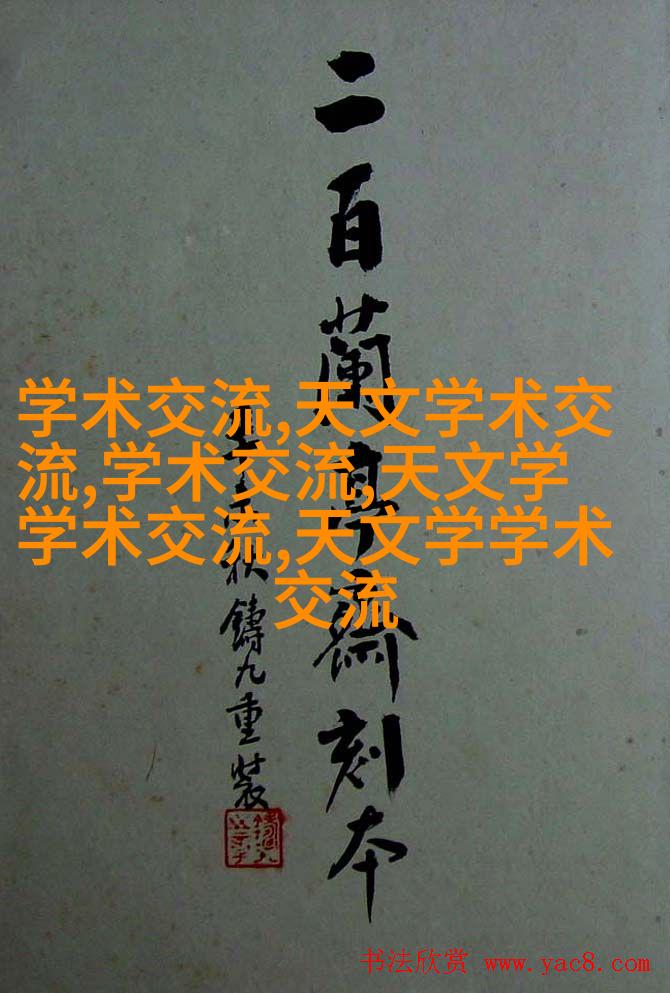 二百蘭亭齋刻本
秋鑄九重裝
学术交流,天文学术交
流,学术交流,天文学
学术交流,天文学学术
交流
书法欣赏 www.yac8.com